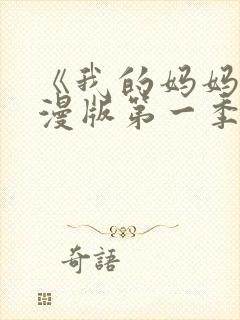 《我的妈妈
漫版第一季
奇語